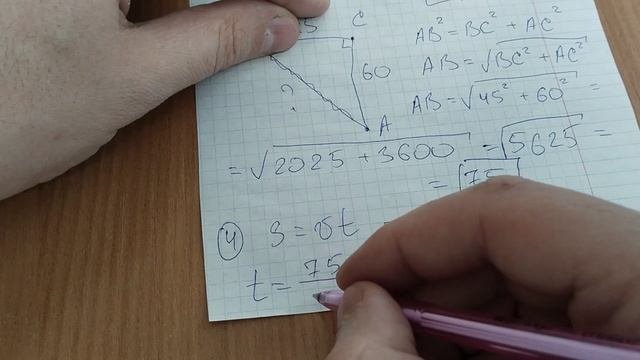 5 C
AB² = BC² + AC²
60
AB = √BC² + AC²
?
AB = √45² + 60² =
A
= √2025 + 3600 = √5625 =
= 75
4 S = vt
t = 75